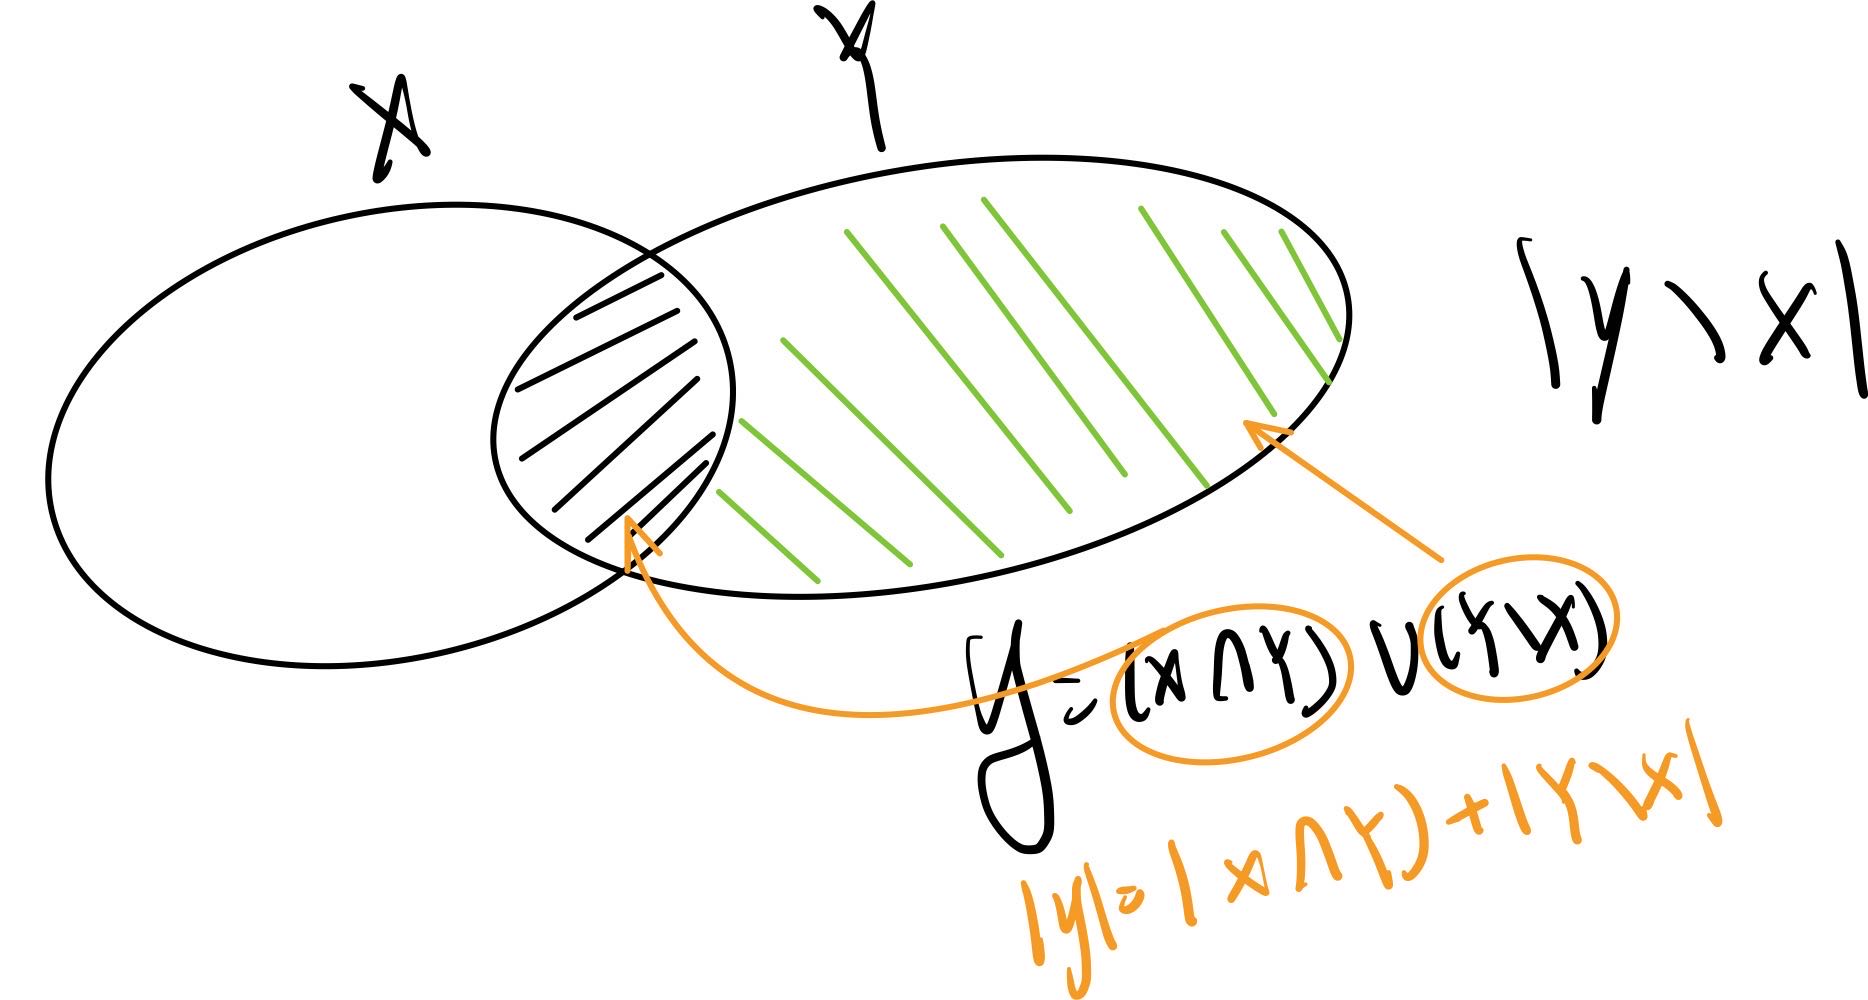 X
Y
|y \ X|
y = (X ∩ Y) ∪ (Y \ X)
|y| = | X ∩ Y) + | Y \ X |